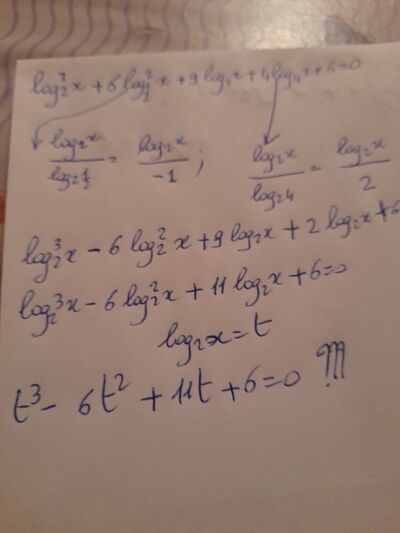 log₂³x + 6 log²_{1/2} x + 9 log₂x + 4 log₄x + 6 = 0
log₂x / log₂ 1/2 = log₂x / -1 ; log₂x / log₂4 = log₂x / 2
log₂³x - 6 log₂²x + 9 log₂x + 2 log₂x + 6
log₂³x - 6 log₂²x + 11 log₂x + 6 = 0
log₂x = t
t³ - 6t² + 11t + 6 = 0 !!!